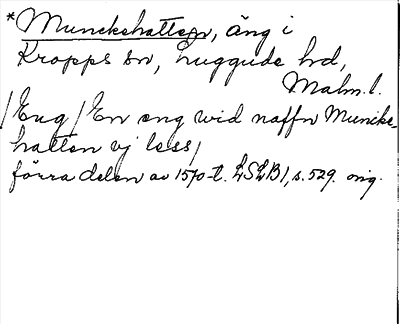 *Munckshatten, äng i
Kropps sn, Luggude hd,
Malm.l.
/Eng/ En eng wid naffn Muncks-
hatten vj less/
förra delen av 1570-t. LSLB1, s. 529. orig.